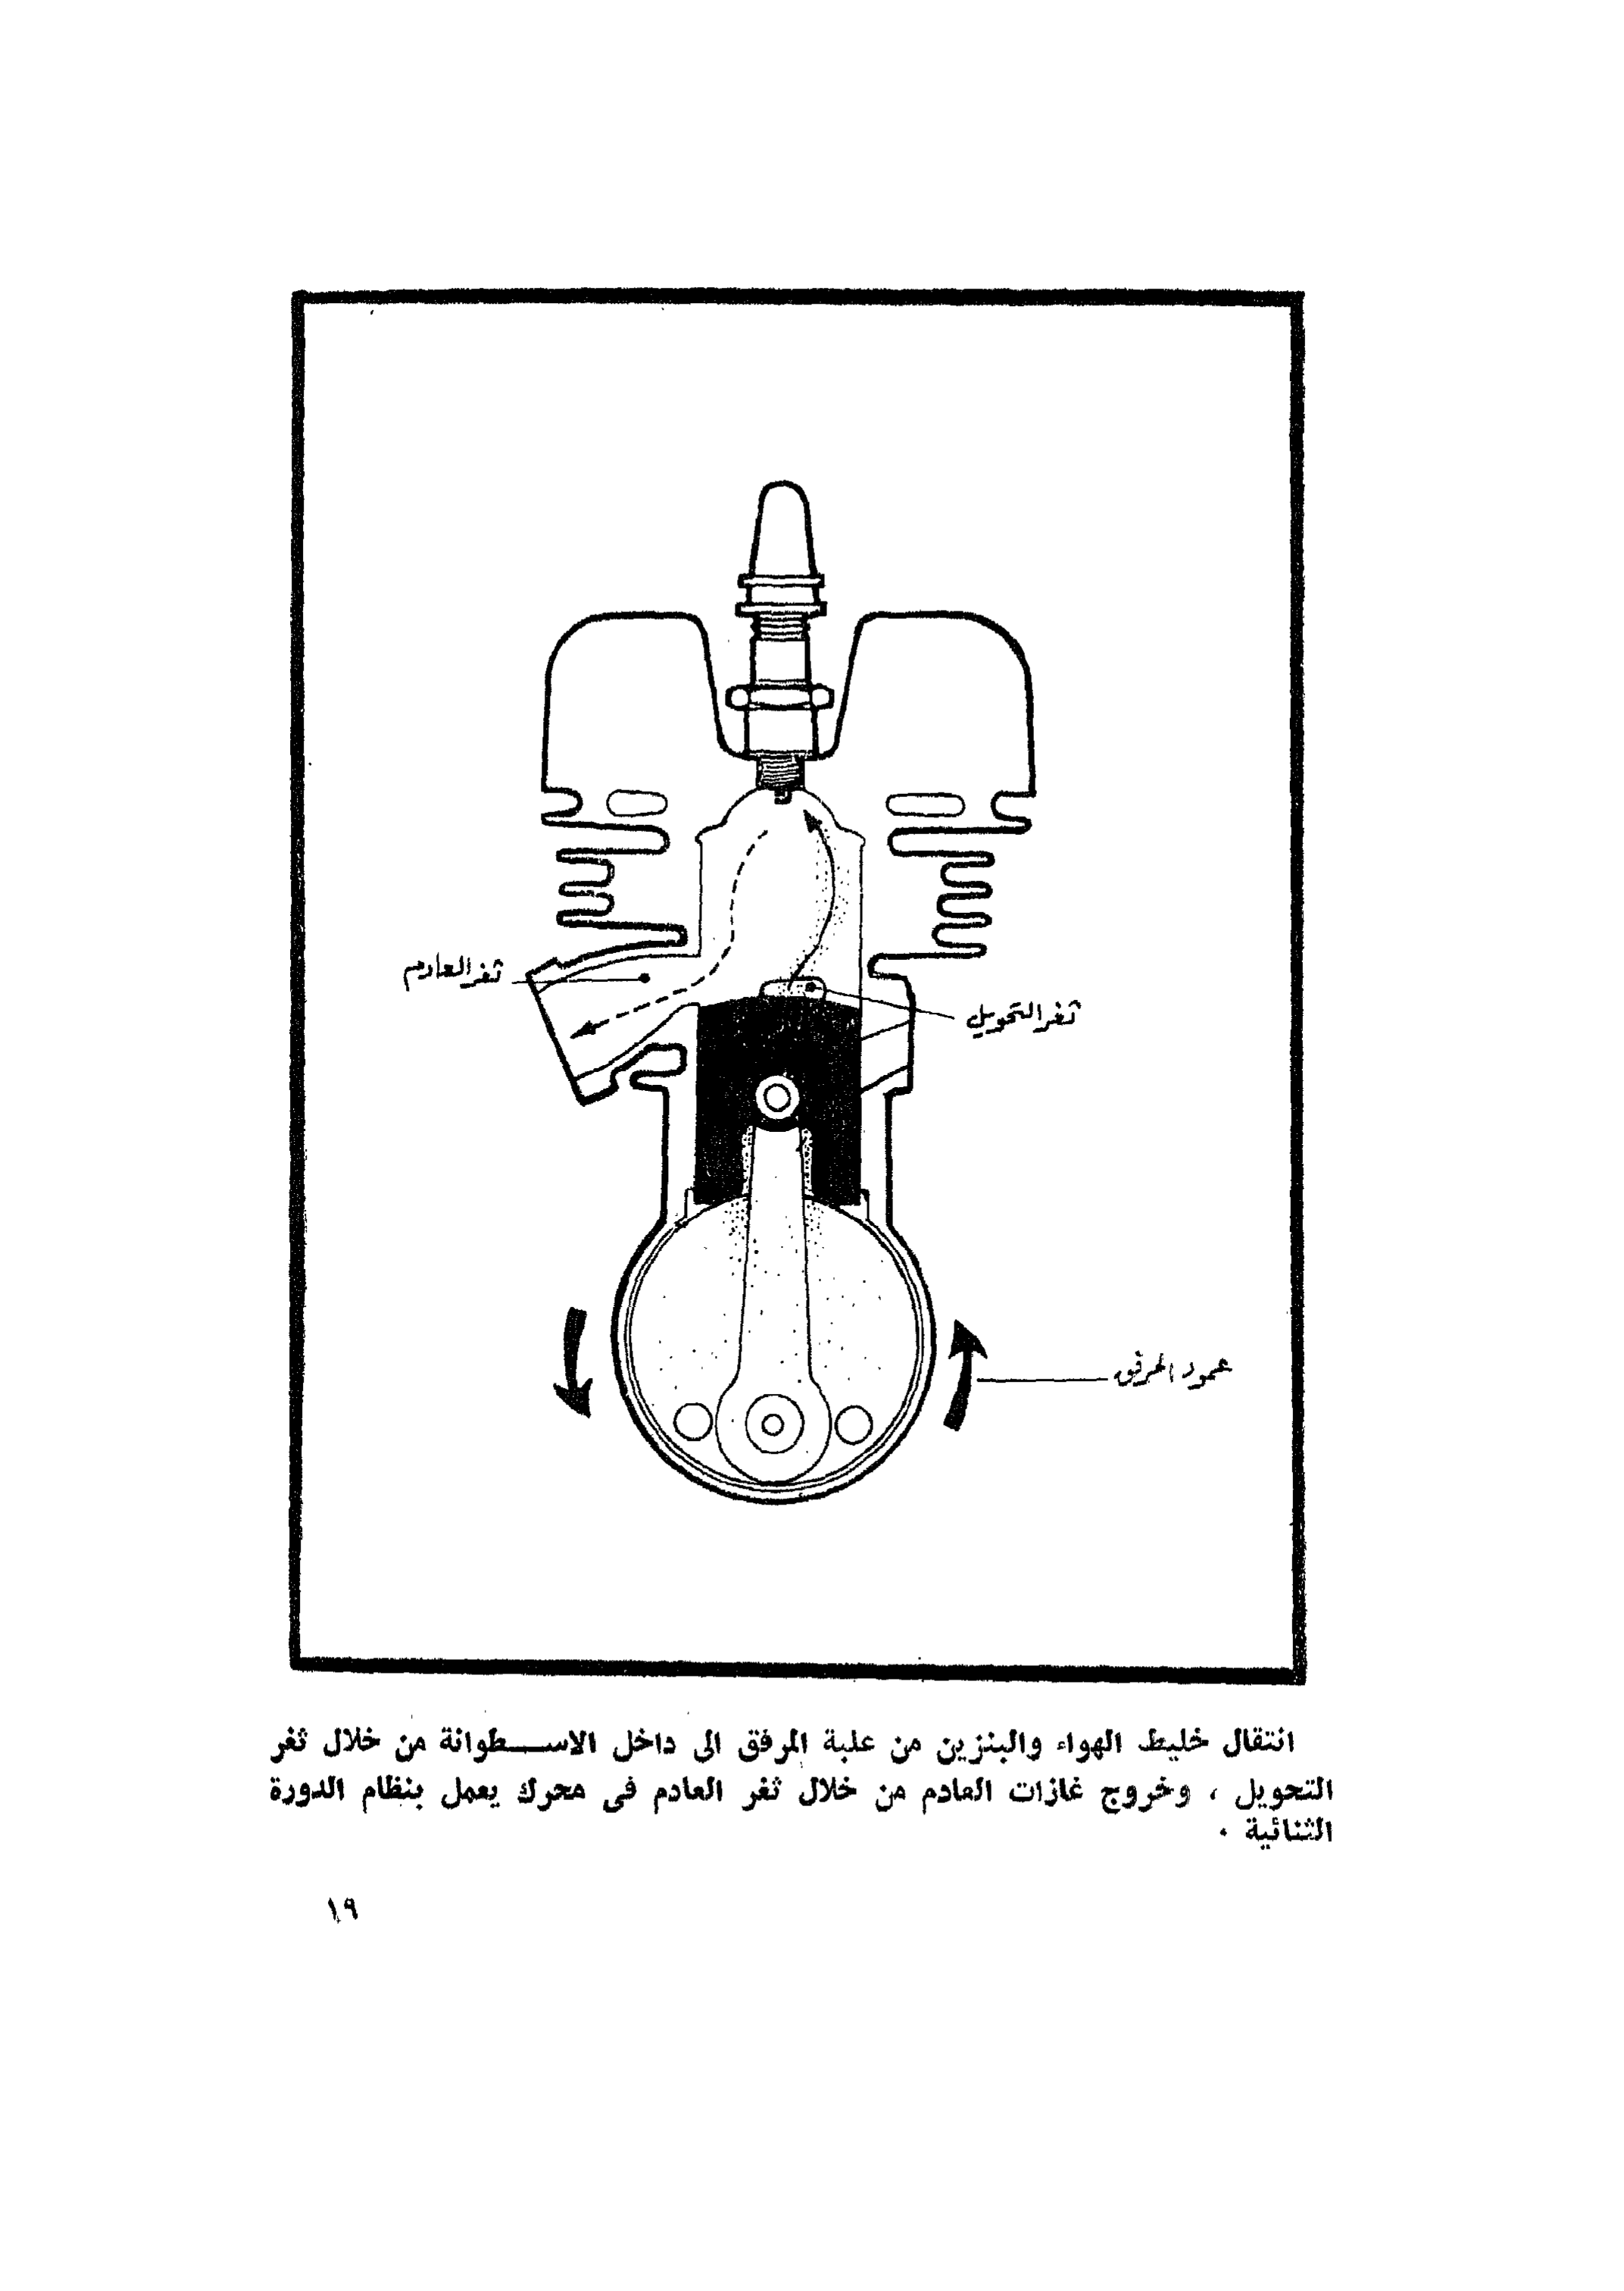 ثغر العادم
ثغر التحويل
عمود المرفق
انتقال خليط الهواء والبنزين من علبة المرفق الى داخل الاسـطوانة من خلال ثغر
التحويل ، وخروج غازات العادم من خلال ثغر العادم فى محرك يعمل بنظام الدورة
الثنائية .
١٩